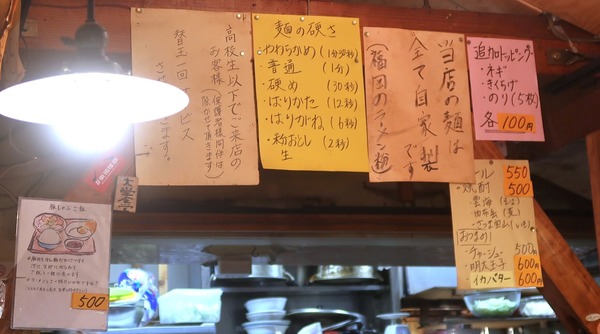 高校生以下でご来店の
お客様(保護者様同伴は
除かせて頂きます)
替玉一回サービス
させて
ます。
麺の硬さ
・やわらかめ(1分30秒)
・普通 (1分)
・硬め (30秒)
・ばりかた (12秒)
・はりがね (6秒)
・粉おとし (2秒)
・生
当店の麺は
全て自家製
です
(福岡のラーメン麺)
追加トッピング
・ネギ
・きくらげ
・のり(5枚)
各100円
ール 550
・焼酎 500
・雲海(そば)
(麦)
(いも)
おつまみ
・チャーシュー 500円
・明太子 600円
・イカバター 600円
500